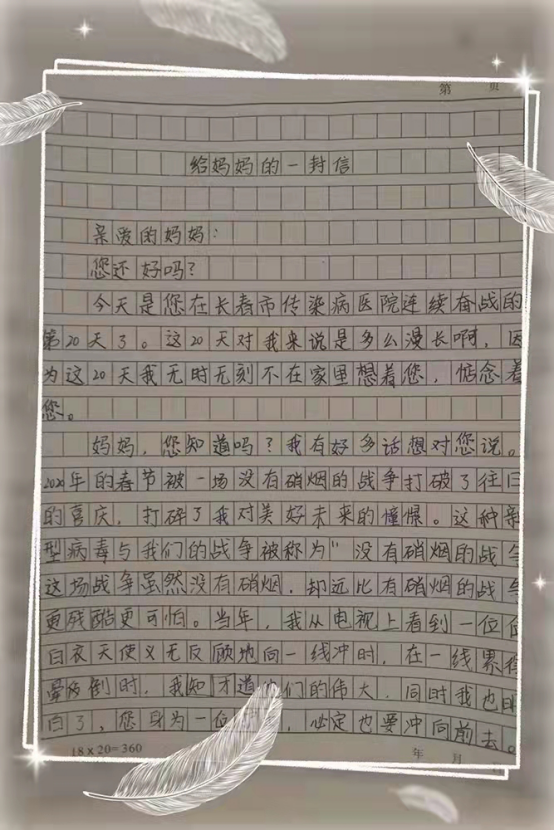 第 页
给妈妈的一封信
亲爱的妈妈：
您还好吗？
今天是您在长春市传染病医院连续奋战的
第20天了。这20天对我来说是多么漫长啊，因
为这20天我无时无刻不在家里想着您，惦念着
您。
妈妈，您知道吗？我有好多话想对您说。
2020年的春节被一场没有硝烟的战争打破了往日
的喜庆，打碎了我对美好未来的憧憬。这种新
型病毒与我们的战争被称为"没有硝烟的战争
这场战争虽然没有硝烟，却远比有硝烟的战争
更残酷更可怕。当年，我从电视上看到一位位
白衣天使义无反顾地向一线冲时，在一线累得
晕倒时，我知 才道 们的伟大，同时我也明
白了，您身为一位 ，必定也要冲向前去。
18×20=360
年 月